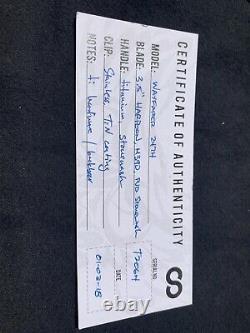 CERTIFICATE OF AUTHENTICITY
MODEL: WAYFARER 247H
BLADE: 3.5" HARPOON, M390, PVD Stonewash
HANDLE: titanium, stonewash
CLIP: Stainless TiN coating
NOTES: ti hardware / backspacer
SERIAL NO.
T2064
DATE
01-02-18